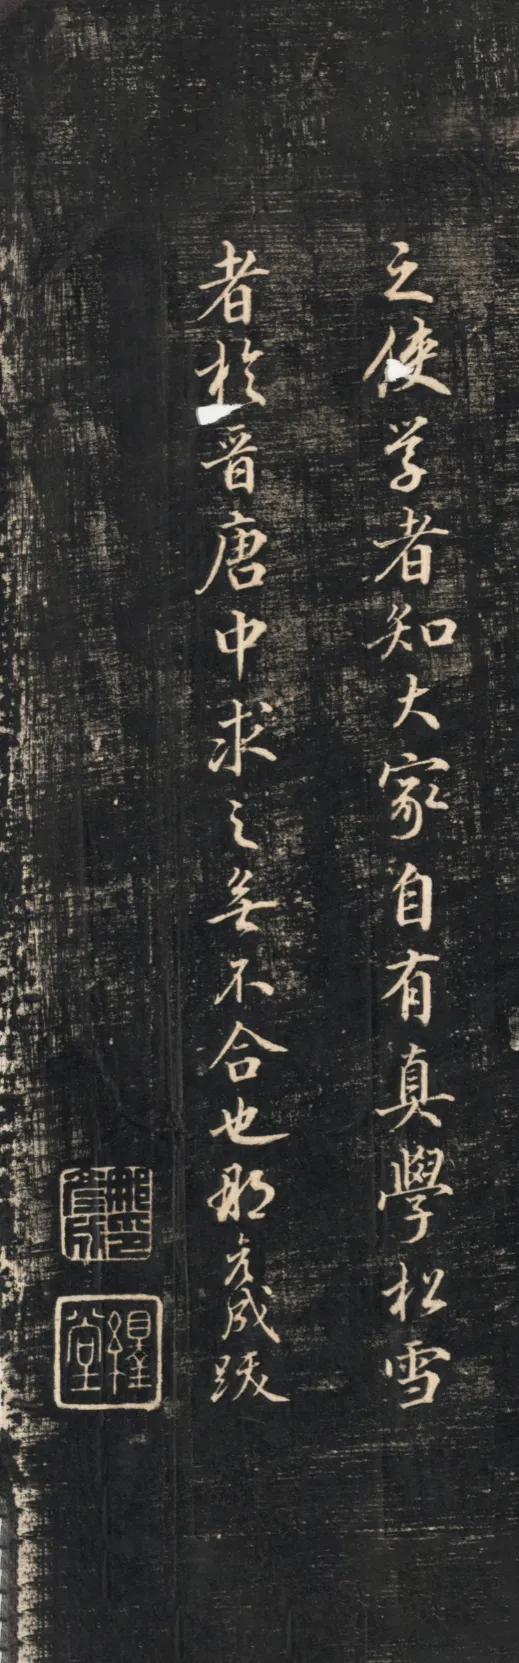 之使学者知大家自有真學松雪
者於晋唐中求之無不合也那彦成跋
那彦成印
堂